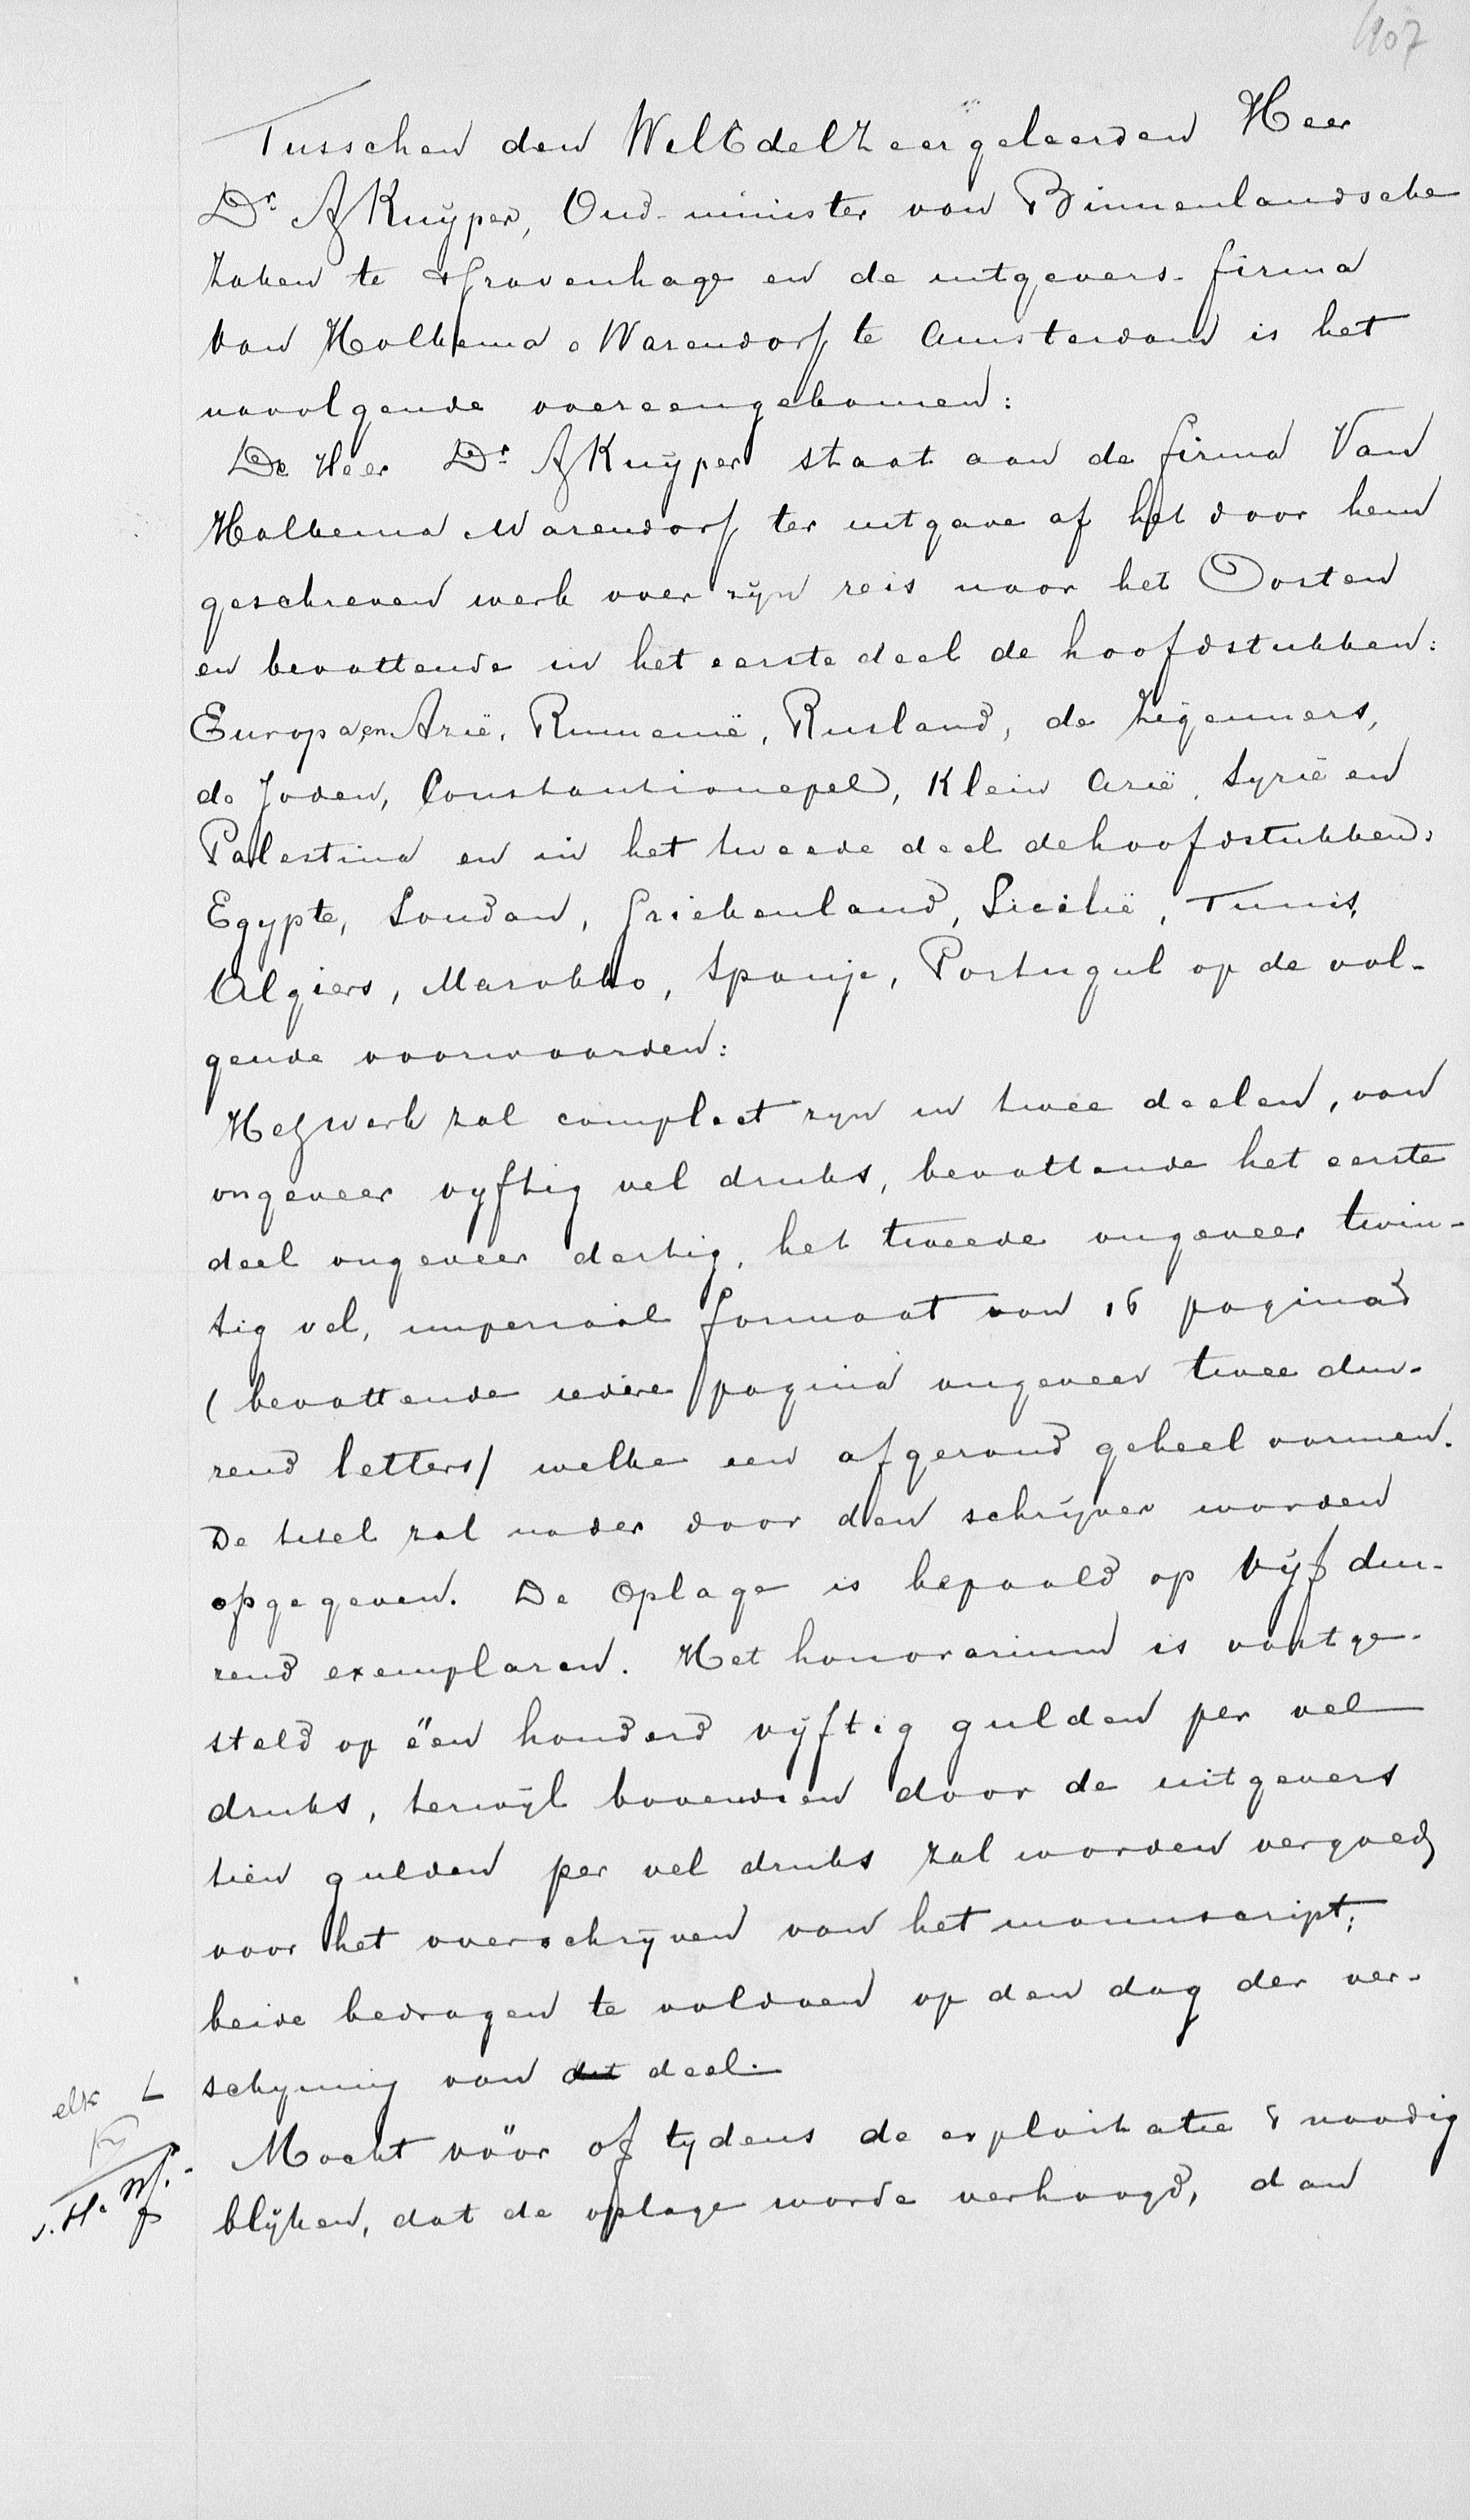 1907
Tusschen den WelEdelZeergeleerden Heer
Dr. A Kuÿper, Oud-minister van Binnenlandsche
Zaken te sGravenhage en de uitgevers-firma
van Holkema & Warendorf te Amsterdam is het
navolgende overeengekomen:
De Heer Dr. A Kuÿper staat aan de firma Van
Holkema & Warendorf ter uitgave af het door hem
geschreven werk over zijn reis naar het Oosten
en bevattende in het eerste deel de hoofdstukken:
Europa en Azië, Rumenië, Rusland, de Zigeuners,
de Joden, Constantionepel, Klein Azië, Syrië en
Palestina en in het tweede deel de hoofdstukken:
Egypte, Soudan, Griekenland, Sicilië, Tunis,
Algiers, Marokko, Spanje, Portugal op de vol-
gende voorwaarden:
Het werk zal compleet zyn in twee deelen, van
ongeveer vyftig vel druks, bevattende het eerste
deel ongeveer dertig, het tweede ongeveer twin-
tig vel, imperiaal formaat van 16 pagina's
(bevattende iedere pagina ongeveer twee dui-
zend letters) welke een afgerond geheel vormen.
De titel zal nader door den schrijver worden
opgegeven. De Oplage is bepaald op vÿf dui-
zend exemplaren. Het honorarium is vastge-
steld op één honderd vÿftig gulden per vel
druks, terwÿl bovendien door de uitgevers
tien gulden per vel druks zal worden vergoed
voor het overschrÿven van het manuscript;
beide bedragen te voldoen op den dag der ver-
schyning van dat deel.
elk L
Ky
v. H. & Wf.
Mocht vóór of tydens de exploitatie 't noodig
blÿken, dat de oplage worde verhoogd, dan